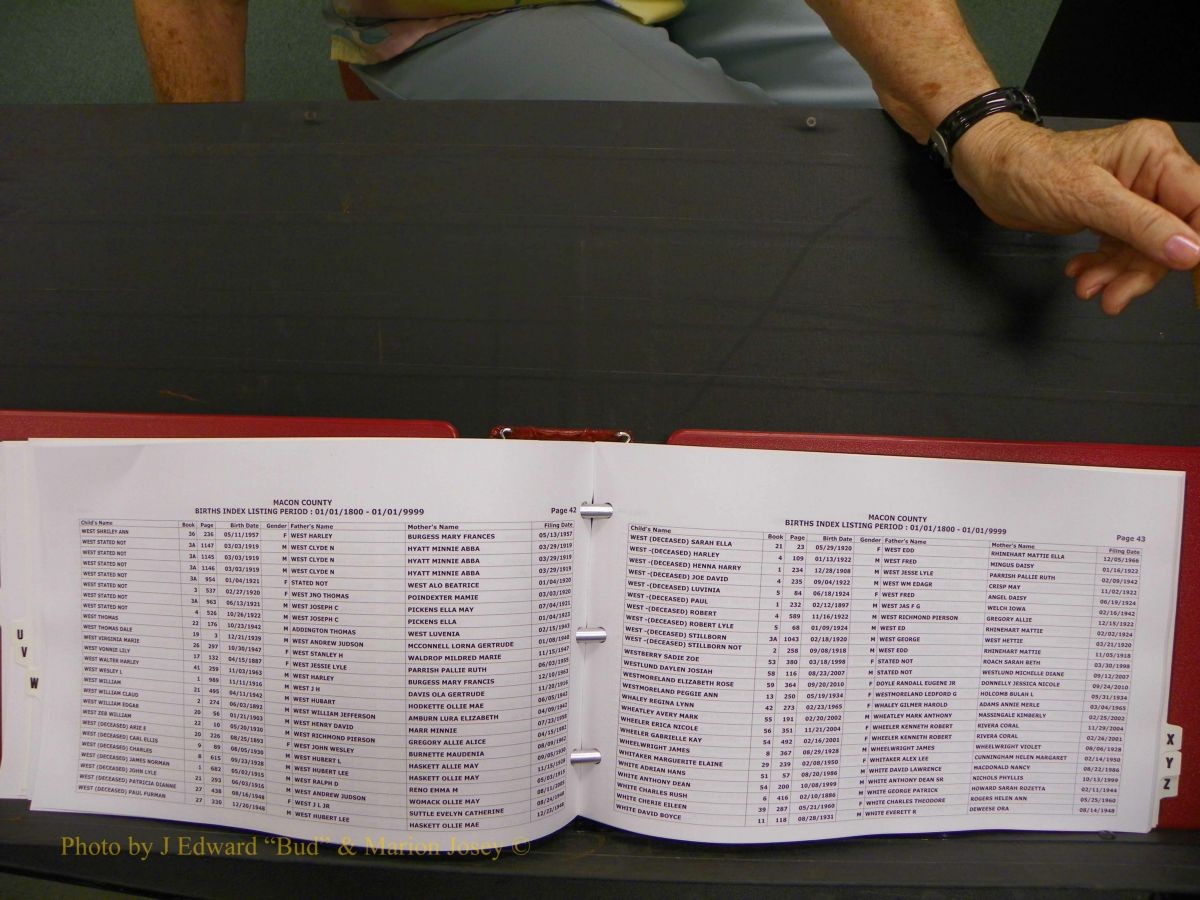 MACON COUNTY
BIRTHS INDEX LISTING PERIOD : 01/01/1800 - 01/01/9999
Page 42
Child's Name Book Page Birth Date Gender Father's Name Mother's Name Filing Date
WEST SHRILEY ANN 36 236 05/11/1957 F WEST HARLEY BURGESS MARY FRANCES 05/13/1957
WEST STATED NOT 3A 1147 03/03/1919 M WEST CLYDE N HYATT MINNIE ABBA 03/29/1919
WEST STATED NOT 3A 1145 03/03/1919 M WEST CLYDE N HYATT MINNIE ABBA 03/29/1919
WEST STATED NOT 3A 1146 03/03/1919 M WEST CLYDE N HYATT MINNIE ABBA 03/29/1919
WEST STATED NOT 3A 954 01/04/1921 F STATED NOT WEST ALO BEATRICE 01/04/1920
WEST STATED NOT 3 537 02/27/1920 F WEST JNO THOMAS POINDEXTER MAMIE 03/03/1920
WEST STATED NOT 3A 963 06/13/1921 M WEST JOSEPH C PICKENS ELLA MAY 07/04/1921
WEST STATED NOT 4 526 10/26/1922 M WEST JOSEPH C PICKENS ELLA 01/04/1923
WEST THOMAS 22 176 10/23/1942 M ADDINGTON THOMAS WEST LUVENIA 02/15/1943
WEST THOMAS DALE 19 3 12/21/1939 M WEST ANDREW JUDSON MCCONNELL LORNA GERTRUDE 01/08/1940
WEST VIRGINIA MARIE 26 297 10/30/1947 F WEST STANLEY H WALDROP MILDRED MARIE 11/15/1947
WEST VONNIE LILY 17 132 04/15/1887 F WEST JESSIE LYLE PARRISH PALLIE RUTH 06/03/1955
WEST WALTER HARLEY 41 259 11/03/1963 M WEST HARLEY BURGESS MARY FRANCES 12/10/1963
WEST WESLEY L 1 989 11/11/1916 M WEST J H DAVIS OLA GERTRUDE 11/20/1916
WEST WILLIAM 21 495 04/11/1942 M WEST HUBART HODKETTE OLLIE MAE 06/05/1942
WEST WILLIAM CLAUD 2 274 06/03/1892 M WEST WILLIAM JEFFERSON AMBURN LURA ELIZABETH 04/09/1942
WEST WILLIAM EDGAR 20 56 01/21/1903 M WEST HENRY DAVID MARR MINNIE 07/23/1958
WEST ZEB WILLIAM 22 10 05/20/1920 M WEST RICHMOND PIERSON GREGORY ALLIE ALICE 04/15/1982
WEST (DECEASED) ARIE E 20 226 08/25/1893 F WEST JOHN WESLEY BURNETTE MAUDENIA 08/09/1962
WEST (DECEASED) CARL ELLIS 9 89 08/05/1930 M WEST HUBERT L HASKETT OLLIE MAY 09/05/1930
WEST (DECEASED) CHARLES 8 615 09/23/1928 M WEST HUBERT LEE HASKETT ALLIE MAY 11/15/1928
WEST (DECEASED) JAMES NORMAN 1 682 05/02/1915 M WEST RALPH D RENO EMMA M 05/03/1915
WEST (DECEASED) JOHN LYLE 21 293 06/03/1916 M WEST ANDREW JUDSON WOMACK OLLIE MAY 08/11/2005
WEST (DECEASED) PATRICIA DIANNE 27 438 08/16/1948 F WEST J L JR SUTTLE EVELYN CATHERINE 08/24/1948
WEST (DECEASED) PAUL FURMAN 27 330 12/20/1948 M WEST HUBERT LEE HASKETT OLLIE MAE 12/22/1948
U
V
W
MACON COUNTY
BIRTHS INDEX LISTING PERIOD : 01/01/1800 - 01/01/9999
Page 43
Child's Name Book Page Birth Date Gender Father's Name Mother's Name Filing Date
WEST (DECEASED) SARAH ELLA 21 23 05/29/1920 F WEST EDD RHINEHART MATTIE ELLA 12/05/1966
WEST -(DECEASED) HARLEY 4 109 01/13/1922 M WEST FRED MINGUS DAISY 01/16/1922
WEST -(DECEASED) HENNA HARRY 1 234 12/28/1908 M WEST JESSE LYLE PARRISH PALLIE RUTH 02/09/1942
WEST -(DECEASED) JOE DAVID 4 235 09/04/1922 M WEST WM EDAGR CRISP MAY 11/02/1922
WEST -(DECEASED) LUVINIA 5 84 06/18/1924 F WEST FRED ANGEL DAISY 06/19/1924
WEST -(DECEASED) PAUL 1 232 02/12/1897 M WEST JAS F G WELCH IOWA 02/16/1942
WEST -(DECEASED) ROBERT 4 589 11/16/1922 M WEST RICHMOND PIERSON GREGORY ALLIE 12/15/1922
WEST -(DECEASED) ROBERT LYLE 5 68 01/09/1924 M WEST ED RHINEHART MATTIE 02/02/1924
WEST -(DECEASED) STILLBORN 3A 1043 02/18/1920 M WEST GEORGE WEST HETTIE 03/21/1920
WEST -(DECEASED) STILLBORN NOT 2 258 09/08/1918 M WEST EDD RHINEHART MATTIE 11/05/1918
WESTBERRY SADIE ZOE 53 380 03/18/1998 F STATED NOT ROACH SARAH BETH 03/30/1998
WESTLUND DAYLEN JOSIAH 58 116 08/23/2007 M STATED NOT WESTLUND MICHELLE DIANE 09/12/2007
WESTMORELAND ELIZABETH ROSE 59 364 09/20/2010 F DOYLE RANDALL EUGENE JR DONNELLY JESSICA NICOLE 09/24/2010
WESTMORELAND PEGGIE ANN 13 250 05/19/1934 F WESTMORELAND LEDFORD G HOLCOMB BULAH L 05/31/1934
WHALEY REGINA LYNN 42 273 02/23/1965 F WHALEY GILMER HAROLD ADAMS ANNIE MERLE 03/04/1965
WHEATLEY AVERY MARK 55 191 02/20/2002 M WHEATLEY MARK ANTHONY MASSINGALE KIMBERLY 02/25/2002
WHEELER ERICA NICOLE 56 351 11/21/2004 F WHEELER KENNETH ROBERT RIVERA CORAL 11/29/2004
WHEELER GABRIELLE KAY 54 492 02/16/2001 F WHEELER KENNETH ROBERT RIVERA CORAL 02/26/2001
WHEELWRIGHT JAMES 8 367 08/29/1928 M WHEELWRIGHT JAMES WHEELWRIGHT VIOLET 08/06/1928
WHITAKER MARGUERITE ELAINE 29 239 02/08/1950 F WHITAKER ALEX LEE CUNNINGHAM HELEN MARGARET 02/14/1950
WHITE ADRIAN HANS 51 57 08/20/1986 M WHITE DAVID LAWRENCE MACDONALD NANCY 08/22/1986
WHITE ANTHONY DEAN 54 200 10/08/1999 M WHITE ANTHONY DEAN SR NICHOLS PHYLLIS 10/13/1999
WHITE CHARLES RUSH 6 416 02/10/1886 M WHITE GEORGE PATRICK HOWARD SARAH ROZETTA 02/11/1944
WHITE CHERIE EILEEN 39 287 05/21/1960 F WHITE CHARLES THEODORE ROGERS HELEN ANN 05/25/1960
WHITE DAVID BOYCE 11 118 08/28/1931 M WHITE EVERETT R DEWEESE ORA 08/14/1948
X
Y
Z
Photo by J Edward “Bud” & Marion Josey ©